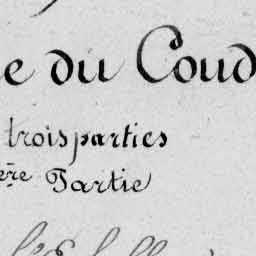 e du Coud
trois parties
ère Partie